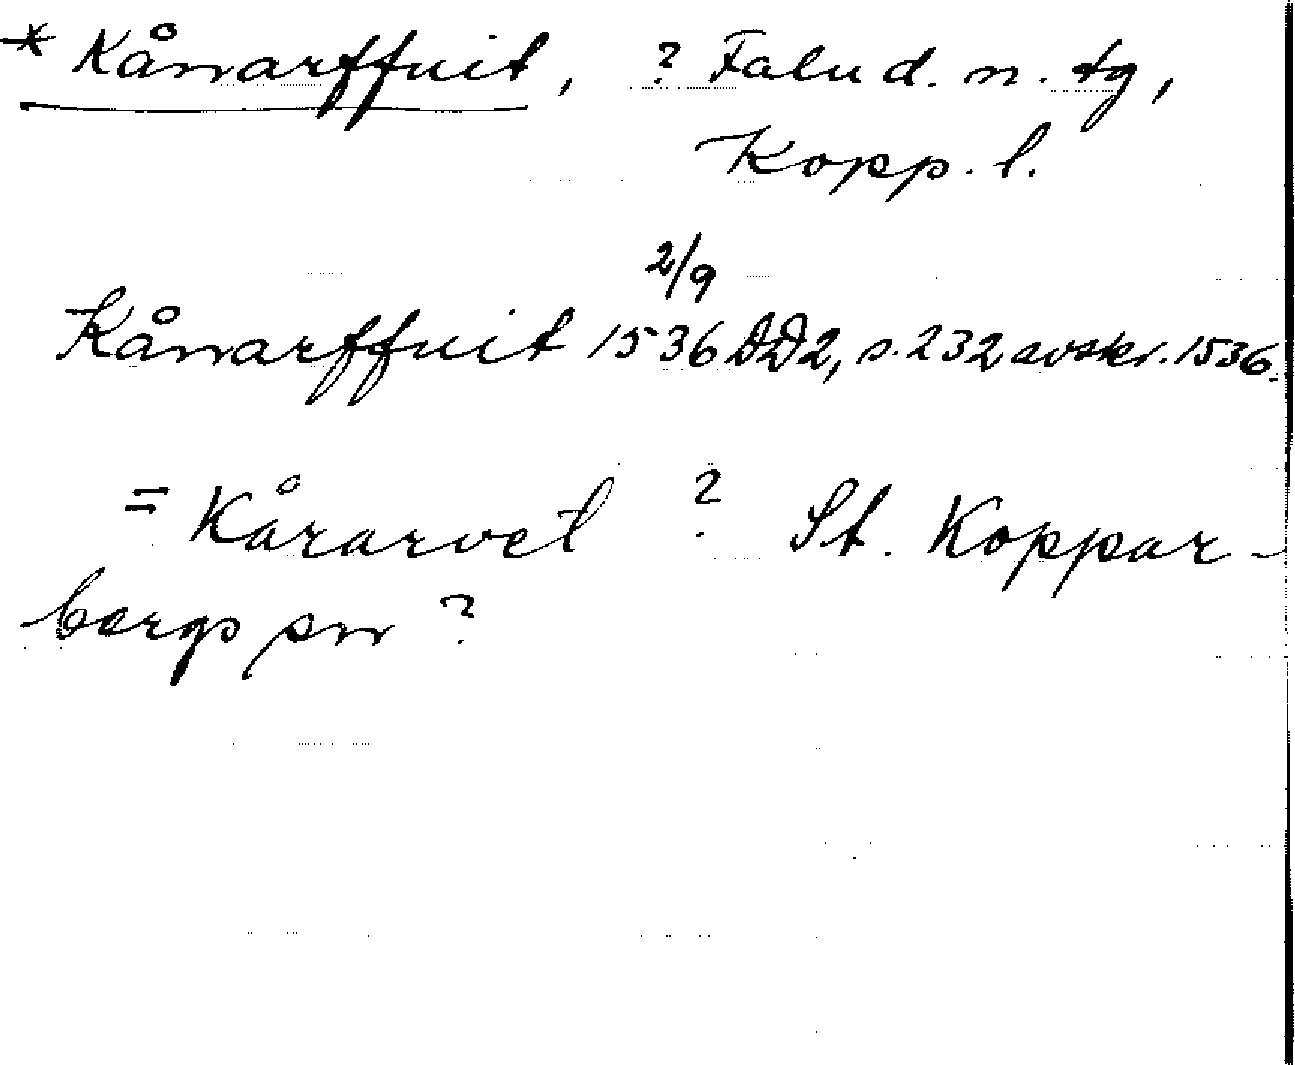 * Kånarffuit, ? Falu d. n. tg,
Kopp. l.
Kånarffuit 1536 2/9 DD2, s. 232 avskr. 1536.
= Kårarvet ? St. Koppar-
bergs sn ?